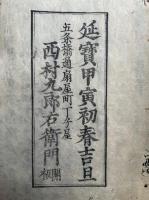 延寶甲寅初春吉旦
五条橋通扇屋町丁子屋
西村九郎右衛門開板